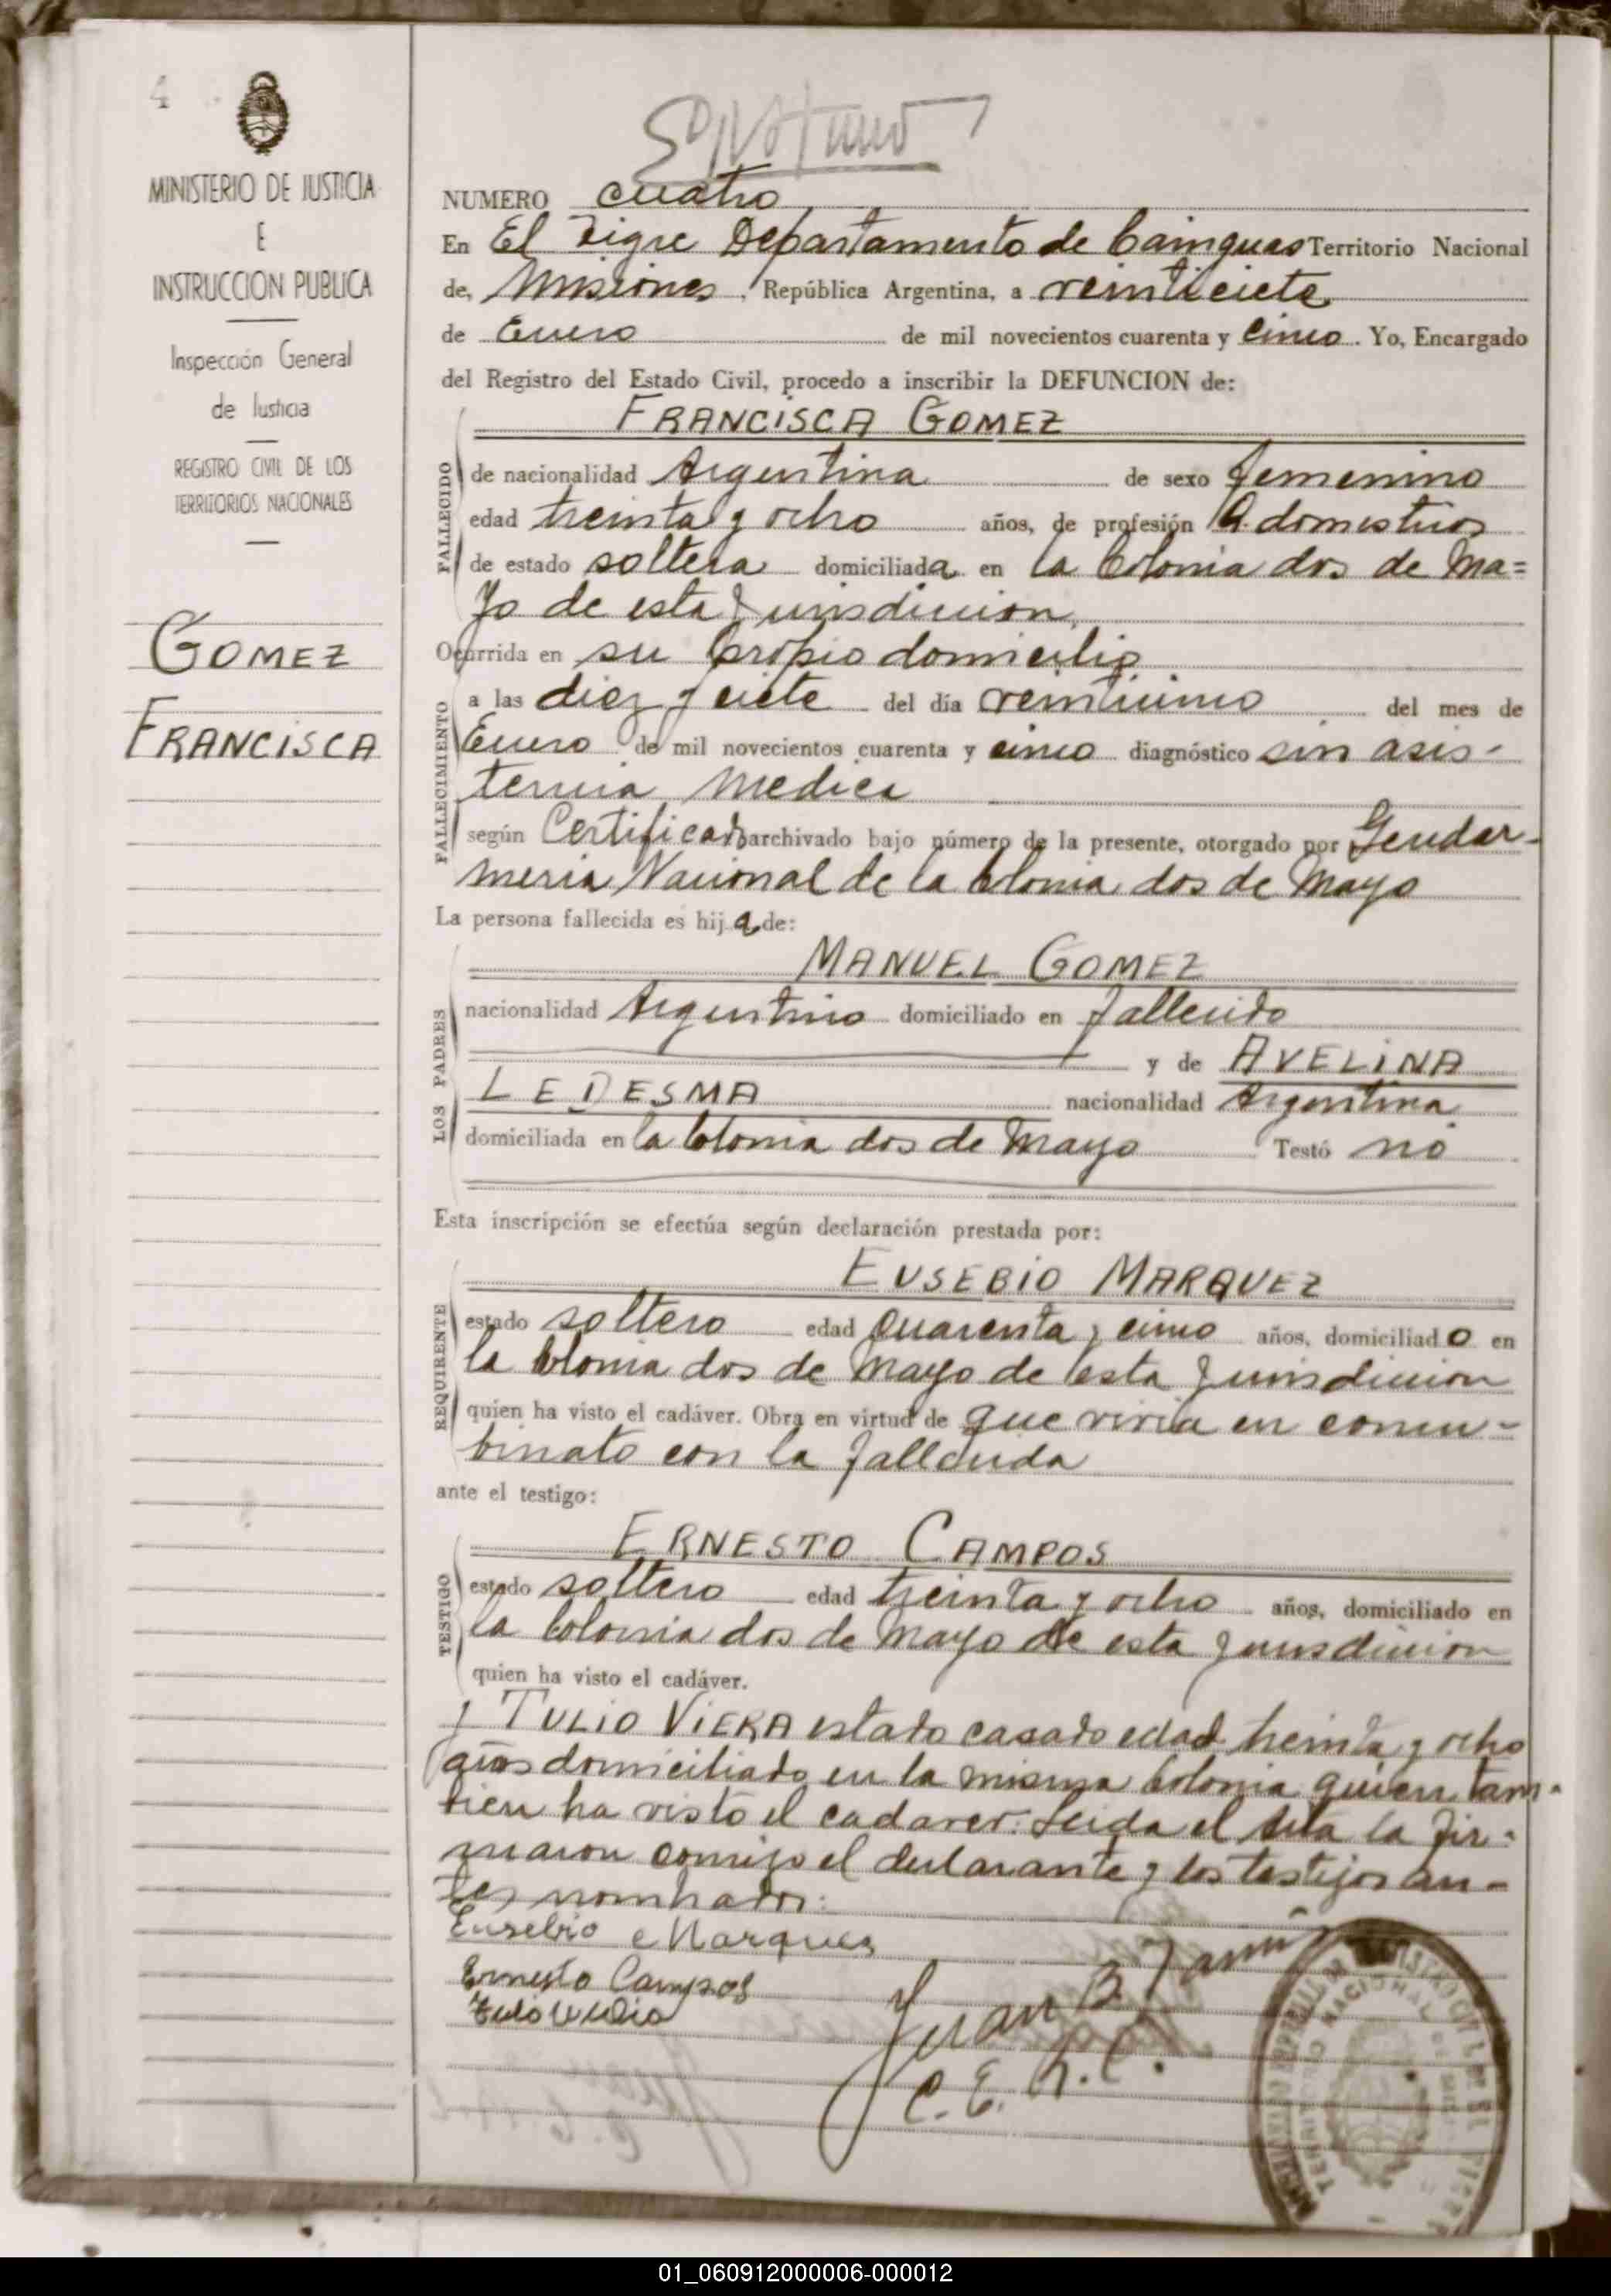 4
MINISTERIO DE JUSTICIA
E
INSTRUCCION PUBLICA
Inspección General
de Justicia
REGISTRO CIVIL DE LOS
TERRITORIOS NACIONALES
GOMEZ
FRANCISCA
NUMERO cuatro
En El Tigre Departamento de Cainguas Territorio Nacional
de, Misiones, República Argentina, a veinticiete
de Enero de mil novecientos cuarenta y cinco. Yo, Encargado
del Registro del Estado Civil, procedo a inscribir la DEFUNCION de:
FRANCISCA GOMEZ
FALLECIDO
de nacionalidad Argentina de sexo femenino
edad treinta y ocho años, de profesión Q. domesticos
de estado soltera domiciliada en la Colonia dos de Ma=
yo de esta Jurisdicion,
Ocurrida en su propio domicilio
FALLECIMIENTO
a las diez y ciete del día veinticinco del mes de
Enero de mil novecientos cuarenta y cinco diagnóstico sin asis-
tencia Medica
según Certificado archivado bajo número de la presente, otorgado por Gendar-
meria Nacional de la Colonia dos de Mayo
La persona fallecida es hija de:
LOS PADRES
MANUEL GOMEZ
nacionalidad Argentino domiciliado en fallecido
y de AVELINA
LEDESMA nacionalidad Argentina
domiciliada en la Colonia dos de Mayo Testó no
Esta inscripción se efectúa según declaración prestada por:
REQUIRENTE
EUSEBIO MARQUEZ
estado soltero edad quarenta y cinco años, domiciliado en
la Colonia dos de Mayo de esta Jurisdicion
quien ha visto el cadáver. Obra en virtud de que vivia en concu-
binato con la fallecida
ante el testigo:
TESTIGO
ERNESTO CAMPOS
estado soltero edad treinta y ocho años, domiciliado en
la Colonia dos de Mayo de esta Jurisdicion
quien ha visto el cadáver.
y TULIO VIERA estado casado edad treinta y ocho
años domiciliado en la misma Colonia quien tam-
bien ha visto el cadaver. Leida el Acta la fir-
maron comigo el declarante y los testijos an-
tes nombrados:
Eusebio Marques
Ernesto Campos
Juan B.
C. E. R. C.
TERRITORIO NACIONAL
01_060912000006-000012